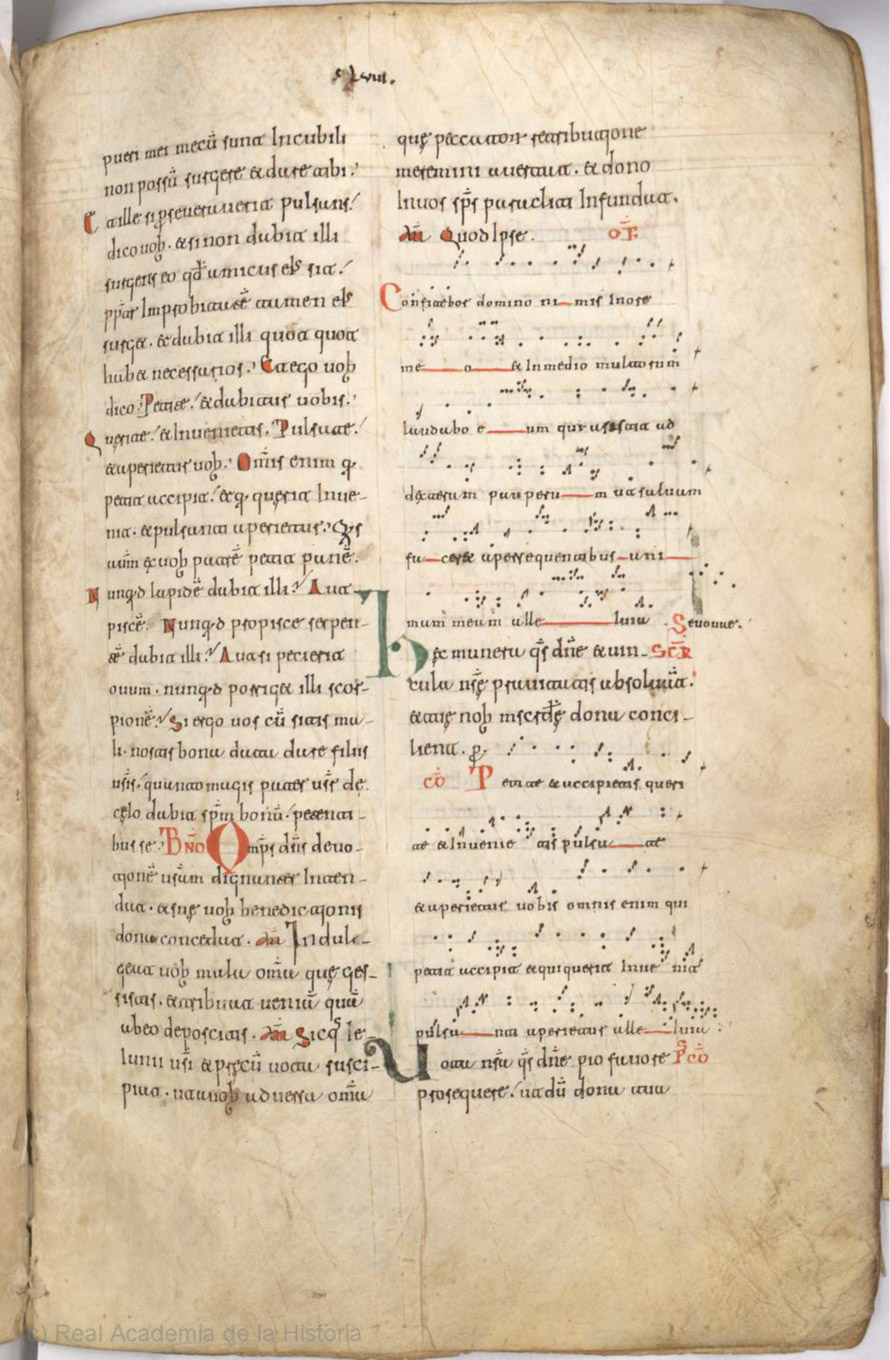 pueri mei mecū sunt In cubili
non possū surgere & dare tibi.
Et ille si pseueraverit pulsans.
dico vob. & si non dabit illi
surgens eo qđ amicus ei⁹ sit.
ppt̄ Improbitatē tamen ei⁹
surget. & dabit illi quot quot
habet necessarios. Et ego vob
dico. Petite. & dabitur vobis.
Querite. & Invenietis. Pulsate.
& aperietur vob. Omīs enim q
petit accipit. & q querit Inve-
nit. & pulsanti aperietur. Qis
aūm ex vob patrē petit panē.
Nunqd lapidē dabit illi. Aut
piscē. Nunqd pro pisce serpen-
tē dabit illi. Aut si petierit
ovum. nunqd porriget illi scor-
pionē. Si ergo vos cū sitis ma-
li. nostis bona data dare filiis
vr̄is. quanto magis pater vr̄ de
celo dabit spm̄ bonū. petenti-
bus se. BNO Omps dn̄s devo-
tionē vr̄am dignanter Inten-
dat. & sue vob benedictionis
dona concedat. Am̄ Indul-
geat vob mala om̄ia que ges-
sistis. & tribuat veniā quā
ab eo deposcitis. Am̄ Sicq Ie-
iunii vr̄i & precū vota susci-
piat. ut a vob adversa om̄ia
que peccator retributione
meremini avertat. & dono
In vos sps̄ paracliti Infundat.
Am̄ Quod Ipse. OF
Confitebor domino ni mis In ore
me o & In medio multorum
laudabo e um qui astitit ad
dexteram paupere m ut salvam
fa ceret a persequentibus ani
mam meam alle luia Sevovae.
Hec munera qs dn̄e & vin- SCR
cula nr̄e pravitatis absolvat.
& tue nob misc̄die dona conci-
lient. p.
CO Petite & accipietis queri
te & Invenie tis pulsa te
& aperietur vobis omnis enim qui
petit accipit & qui querit Inve nit
pulsa nti aperietur alle luia
Vota nr̄a qs dn̄e pio favore PCO
prosequere. ut dū dona tua
Real Academia de la Historia